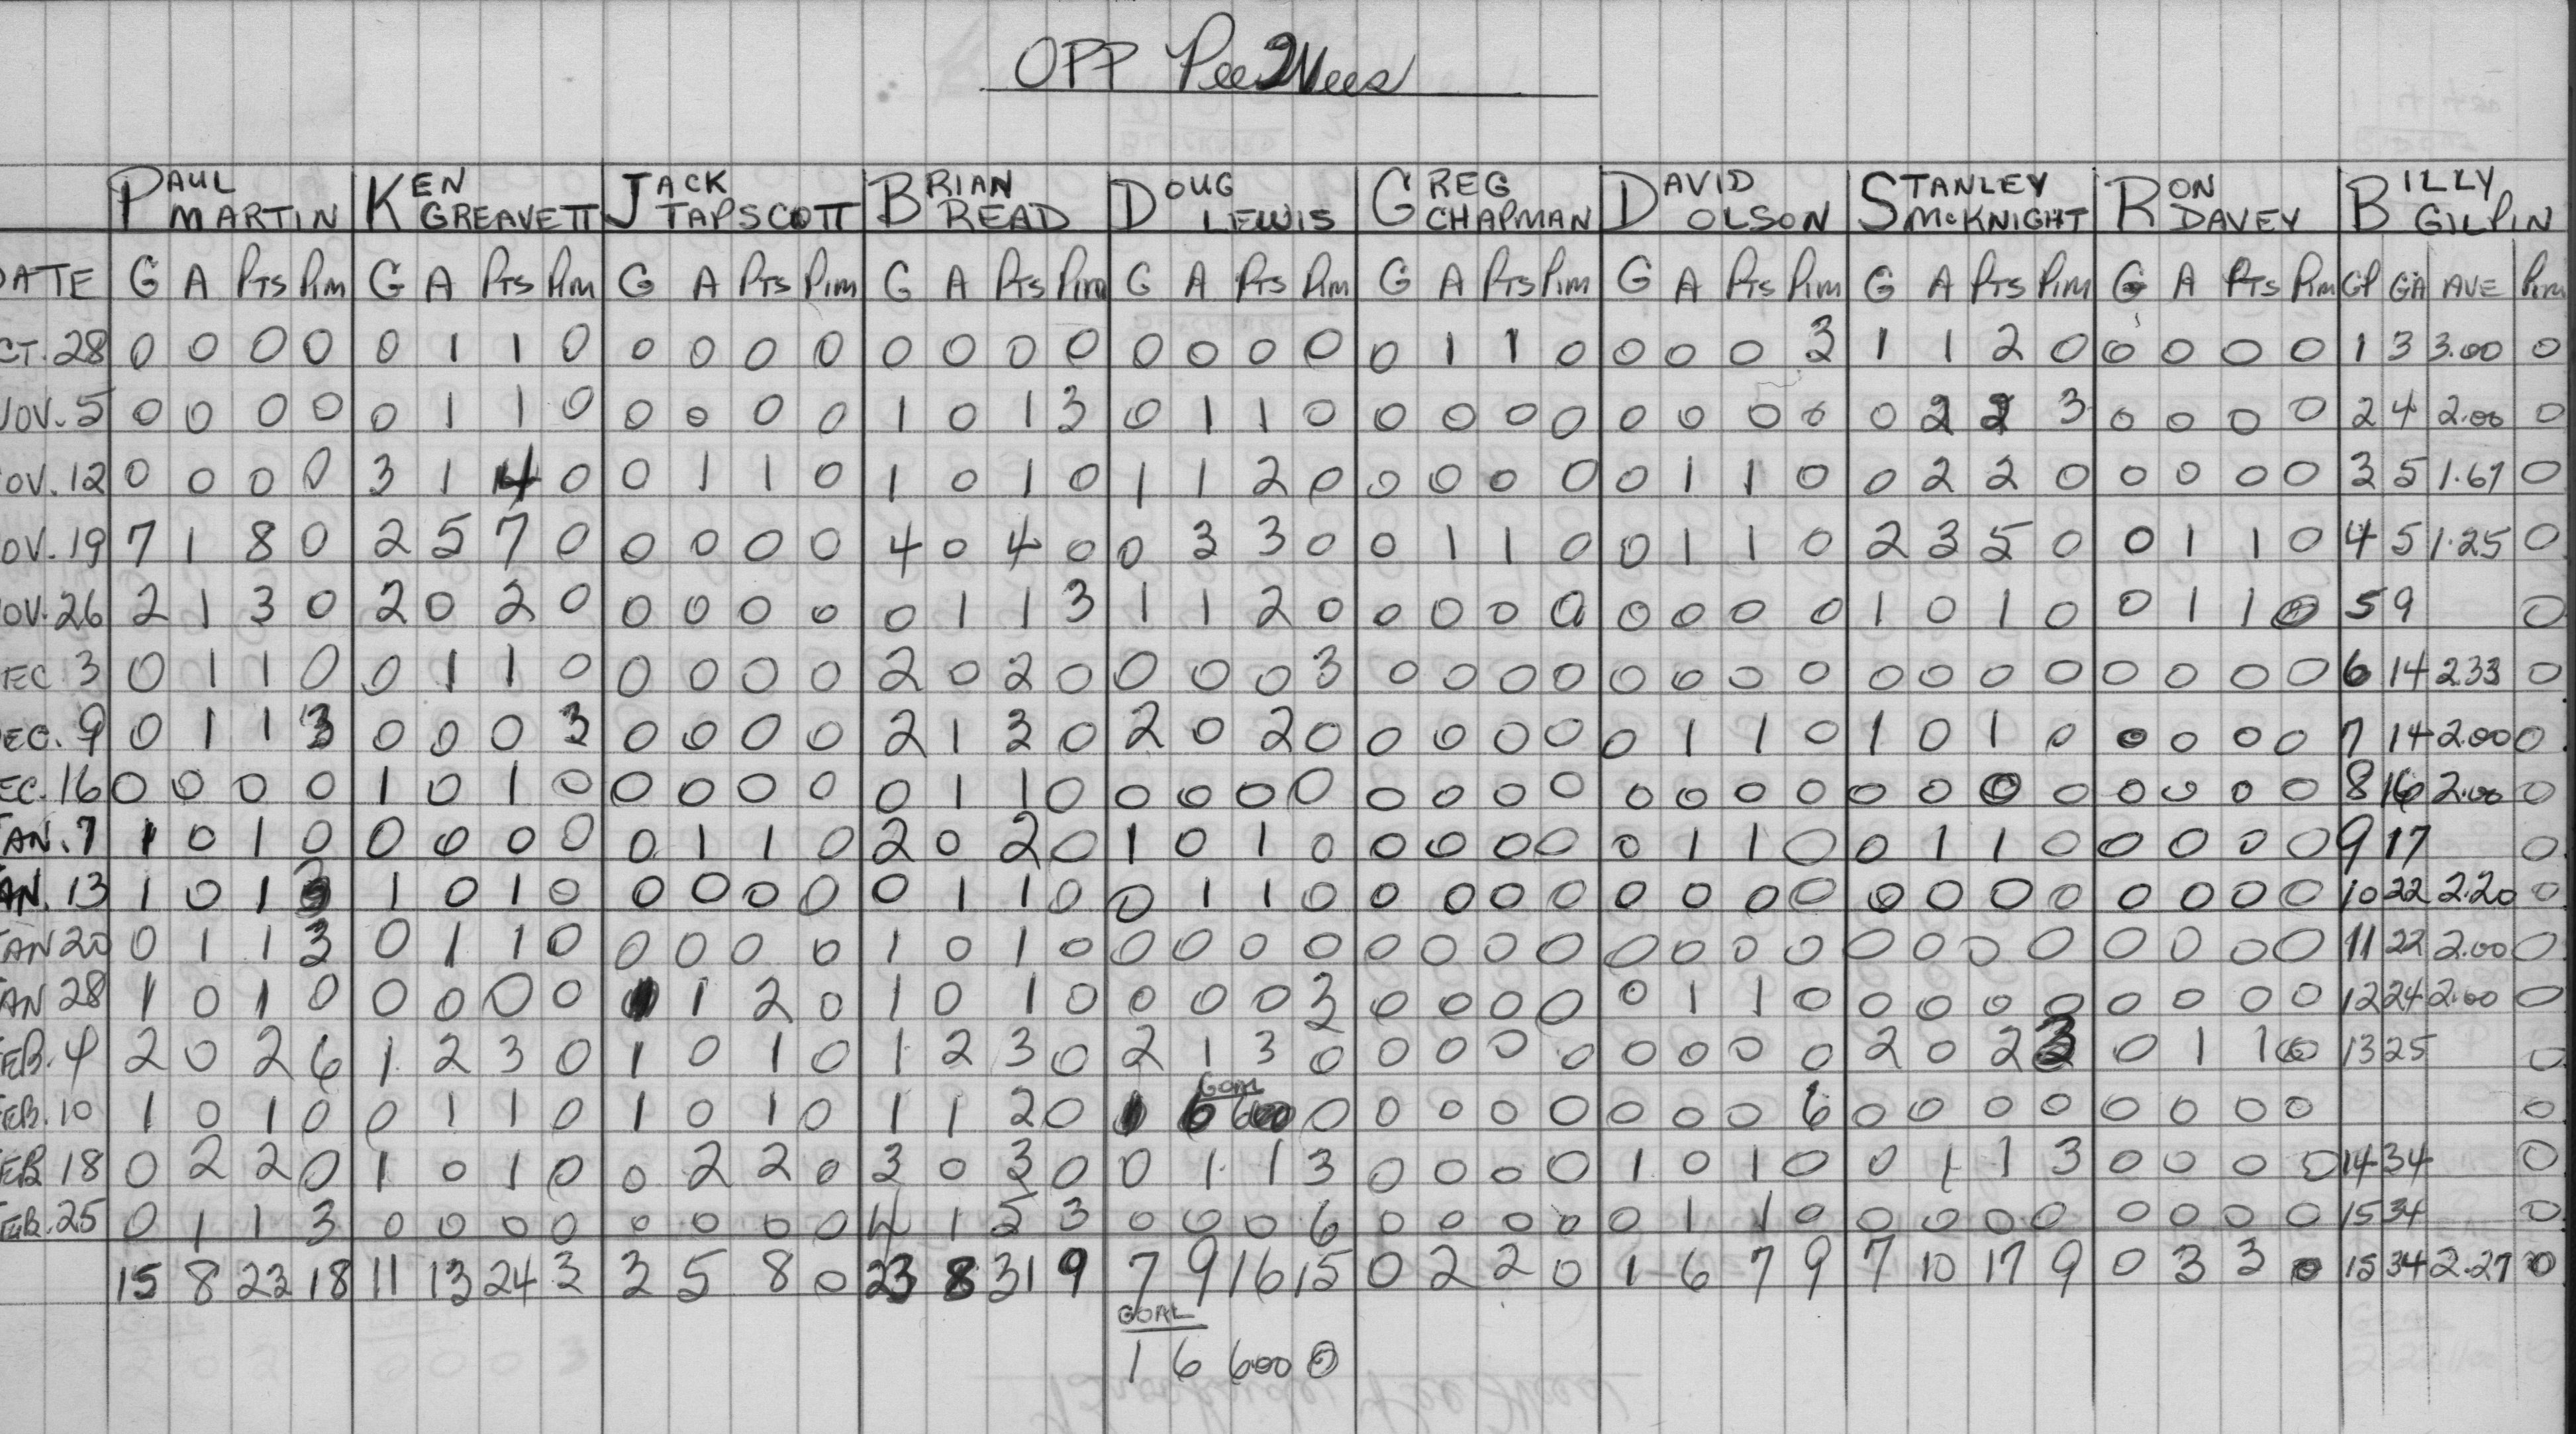 OPP PeeWees
PAUL MARTIN KEN GREAVETT JACK TAPSCOTT BRIAN READ DOUG LEWIS GREG CHAPMAN DAVID OLSON STANLEY McKNIGHT RON DAVEY BILLY GILPIN
DATE G A PTS PIM G A PTS PIM G A PTS PIM G A PTS PIM G A PTS PIM G A PTS PIM G A PTS PIM G A PTS PIM G A PTS PIM GP GA AVE PIM
CT. 28 0 0 0 0 0 1 1 0 0 0 0 0 0 0 0 0 0 0 0 0 0 1 1 0 0 0 0 3 1 1 2 0 0 0 0 0 1 3 3.00 0
NOV. 5 0 0 0 0 0 1 1 0 0 0 0 0 1 0 1 3 0 1 1 0 0 0 0 0 0 0 0 0 0 2 2 3 0 0 0 0 2 4 2.00 0
OV. 12 0 0 0 0 3 1 4 0 0 1 1 0 1 0 1 0 1 1 2 0 0 0 0 0 0 1 1 0 0 2 2 0 0 0 0 0 3 5 1.67 0
OV. 19 7 1 8 0 2 5 7 0 0 0 0 0 4 0 4 0 0 3 3 0 0 1 1 0 0 1 1 0 2 3 5 0 0 1 1 0 4 5 1.25 0
OV. 26 2 1 3 0 2 0 2 0 0 0 0 0 0 1 1 3 1 1 2 0 0 0 0 0 0 0 0 0 1 0 1 0 0 1 1 0 5 9 0
EC 3 0 1 1 0 0 1 1 0 0 0 0 0 2 0 2 0 0 0 0 3 0 0 0 0 0 0 0 0 0 0 0 0 0 0 0 0 6 14 2.33 0
EC. 9 0 1 1 3 0 0 0 3 0 0 0 0 2 1 3 0 2 0 2 0 0 0 0 0 0 1 1 0 1 0 1 0 0 0 0 0 7 14 2.00 0
EC. 16 0 0 0 0 1 0 1 0 0 0 0 0 0 1 1 0 0 0 0 0 0 0 0 0 0 0 0 0 0 0 0 0 0 0 0 0 8 16 2.00 0
AN. 7 1 0 1 0 0 0 0 0 0 1 1 0 2 0 2 0 1 0 1 0 0 0 0 0 0 1 1 0 0 1 1 0 0 0 0 0 9 17 0
AN. 13 1 0 1 3 1 0 1 0 0 0 0 0 0 1 1 0 0 1 1 0 0 0 0 0 0 0 0 0 0 0 0 0 0 0 0 0 10 22 2.20 0
AN 20 0 1 1 3 0 1 1 0 0 0 0 0 1 0 1 0 0 0 0 0 0 0 0 0 0 0 0 0 0 0 0 0 0 0 0 0 11 22 2.00 0
AN 28 1 0 1 0 0 0 0 0 1 1 2 0 1 0 1 0 0 0 0 3 0 0 0 0 0 1 1 0 0 0 0 0 0 0 0 0 12 24 2.00 0
EB. 4 2 0 2 6 1 2 3 0 1 0 1 0 1 2 3 0 2 1 3 0 0 0 0 0 0 0 0 0 2 0 2 3 0 1 1 0 13 25 0
GOAL
EB. 10 1 0 1 0 0 1 1 0 1 0 1 0 1 1 2 0 1 6 600 0 0 0 0 0 0 0 0 6 0 0 0 0 0 0 0 0 0
EB 18 0 2 2 0 1 0 1 0 0 2 2 0 3 0 3 0 0 1 1 3 0 0 0 0 1 0 1 0 0 1 1 3 0 0 0 0 14 34 0
EB. 25 0 1 1 3 0 0 0 0 0 0 0 0 4 1 5 3 0 0 0 6 0 0 0 0 0 1 1 0 0 0 0 0 0 0 0 0 15 34 0
15 8 23 18 11 13 24 3 3 5 8 0 23 8 31 9 7 9 16 15 0 2 2 0 1 6 7 9 7 10 17 9 0 3 3 0 15 34 2.27 0
GOAL
1 6 600 0